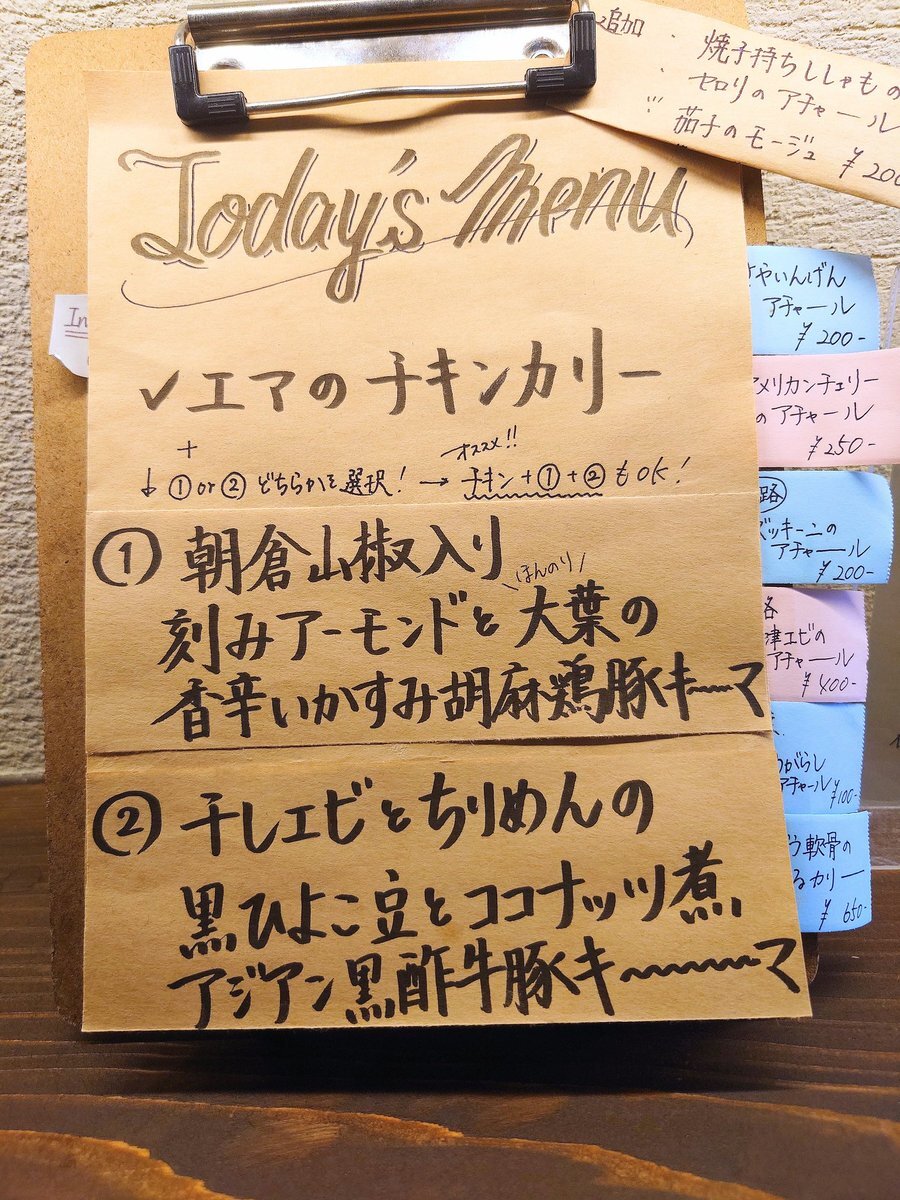 追加
焼子持ちししゃもの
セロリのアチャール
茄子のモージュ ¥200
Today's Menu
In
✓エマのチキンカリー
+
オススメ!!
↓ ① or ② どちらかを選択! → チキン+①+②もOK!
① 朝倉山椒入り
ほんのり
刻みアーモンドと大葉の
香辛いかすみ胡麻鶏豚キ〜マ
② 干しエビとちりめんの
黒ひよこ豆とココナッツ煮
アジアン黒酢牛豚キ〜〜マ
さやいんげん
アチャール
¥200-
アメリカンチェリー
のアチャール
¥250-
路
ズッキーニの
アチャール
¥200-
津エビの
アチャール
¥400-
がらし
アチャール
¥100-
う軟骨の
るカリー
¥650-